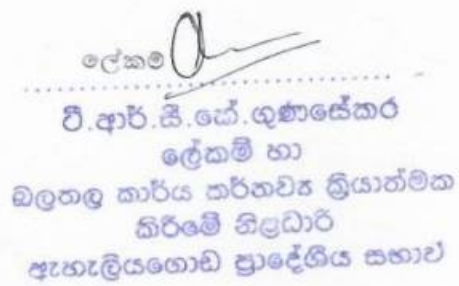 ලේකම්
ටී.ආර්.සී.කේ.ගුණසේකර
ලේකම් හා
බලතල කාර්ය කර්තව්‍ය ක්‍රියාත්මක
කිරීමේ නිළධාරි
ඇහැලියගොඩ ප්‍රාදේශීය සභාව